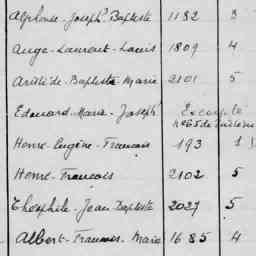 Alphonse-Joseph Baptiste 1182 3
Ange-Laurent-Louis 1809 4
Aristide-Baptiste Marie 2101 5
Edouard-Marie-Joseph
Henri-Eugène-François 193 1
Henri-François 2102 5
Théophile-Jean Baptiste 2027 5
Albert-François-Marie 1685 4